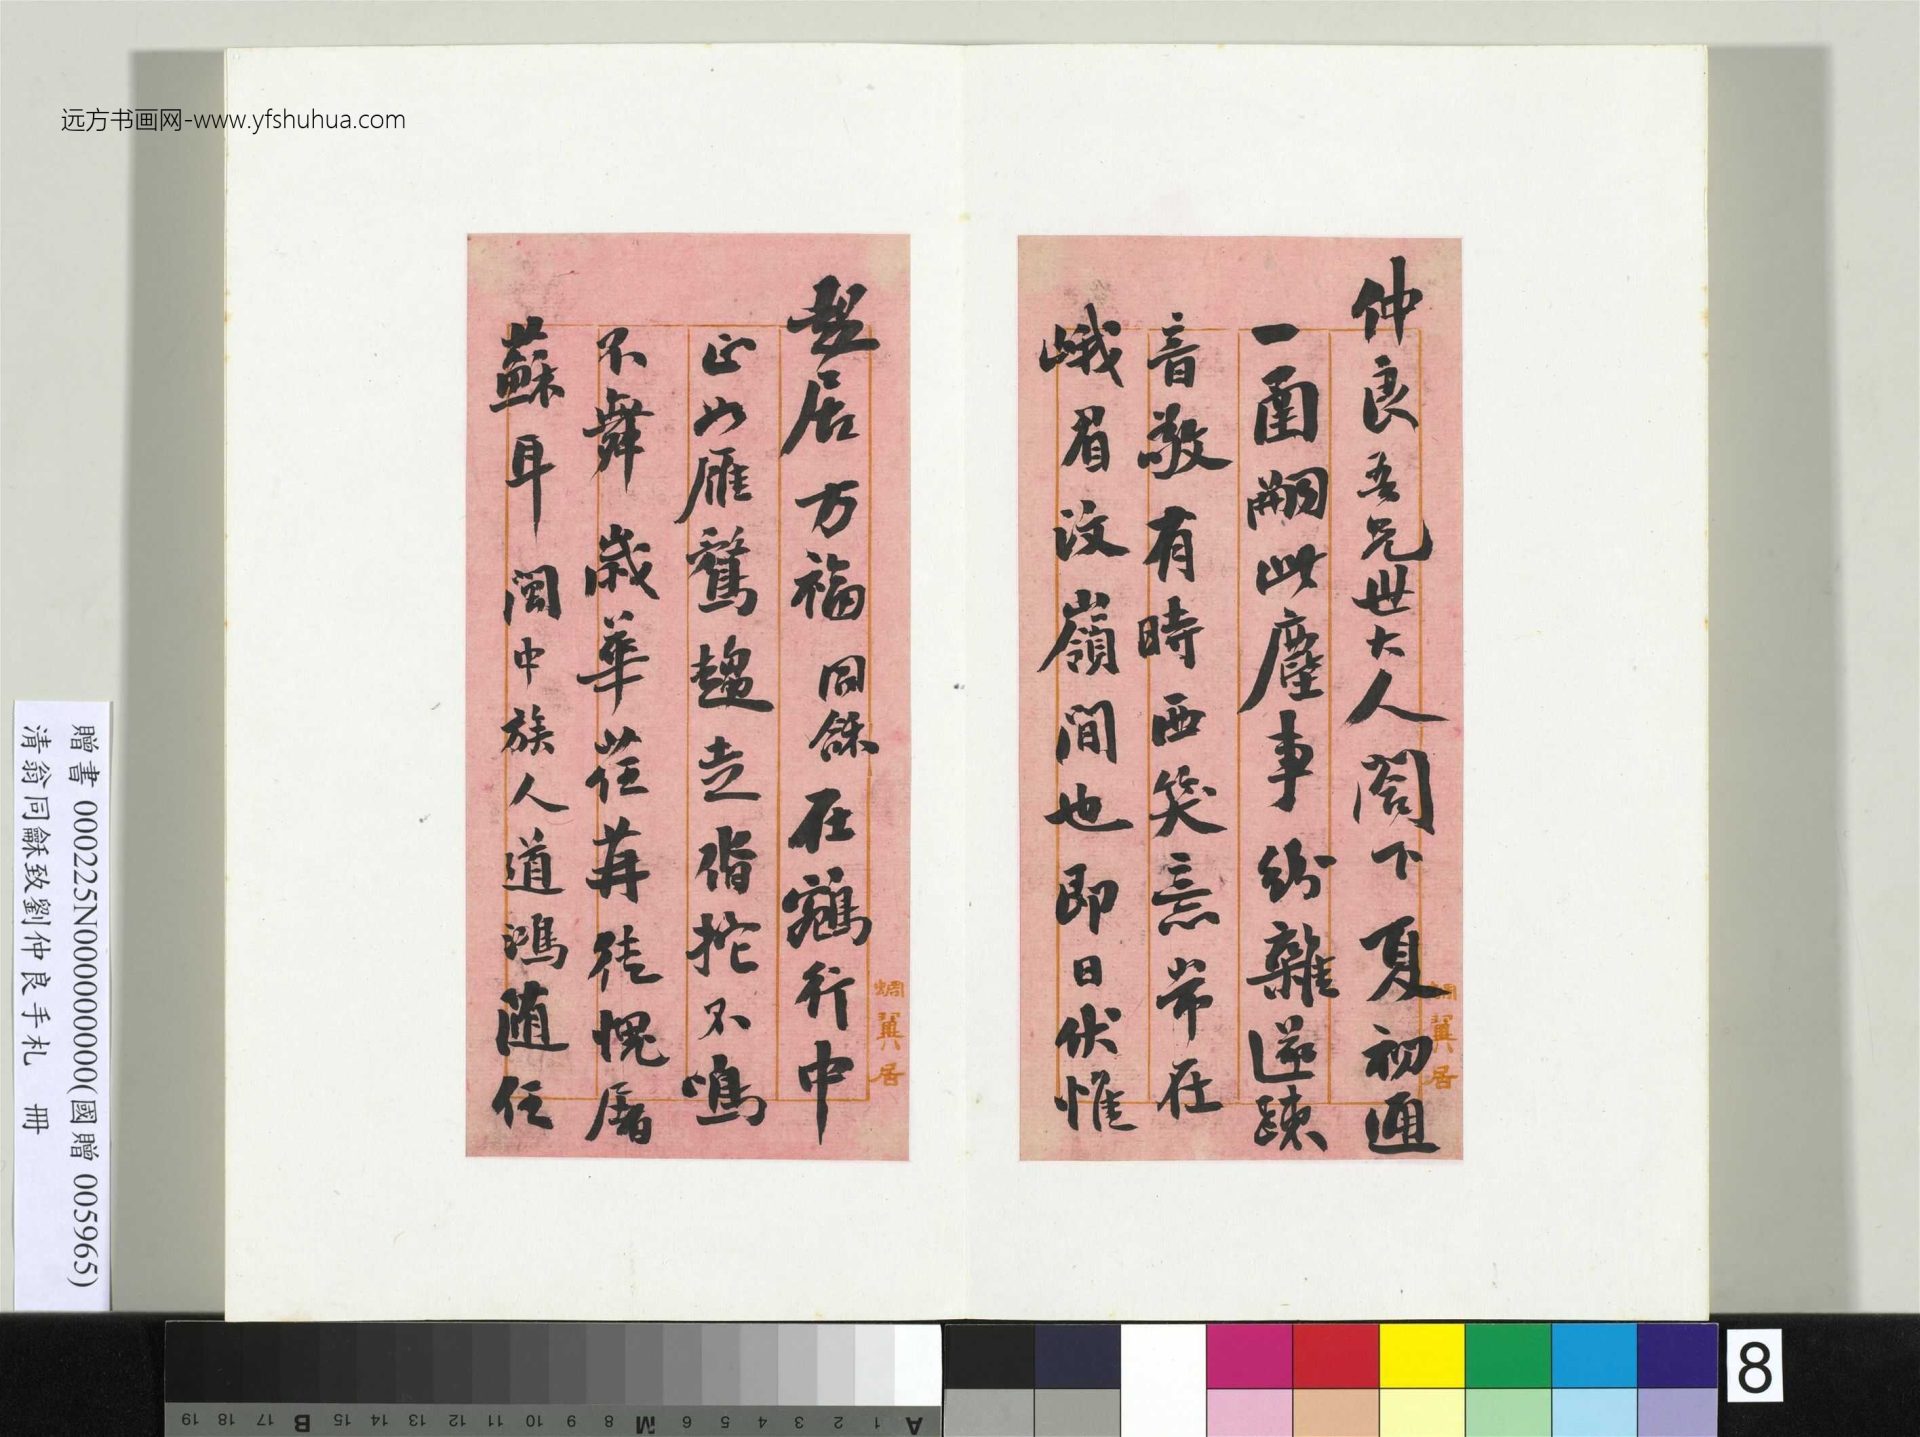 远方书画网-www.yfshuhua.com
仲良吾兄世大人閣下夏初通
一函嗣此塵事紛雜遂疎
音敬有時西笑意常在
峨眉汶嶺間也即日伏惟
興居万福同龢在鵷行中
正如雁鶩趨走階坨不鳴
不舞歲華荏苒徒愧屠
蘇耳閩中族人道鴻随任
翼居
翼居
贈書 000225N000000000(國贈 005965)
清翁同龢致劉仲良手札 冊
A 1 2 3 4 5 6 M 8 9 10 11 12 13 14 15 B 17 18 19
8